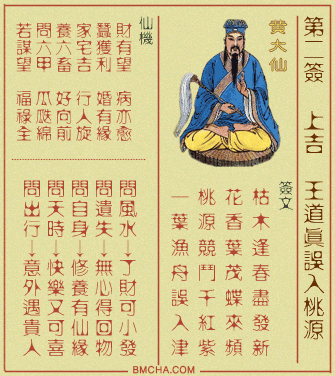 第二簽 上吉 王道眞誤入桃源
黃大仙
簽文
枯木逢春盡發新
花香葉茂蝶來頻
桃源競鬥千紅紫
一葉漁舟誤入津
仙機
財有望 病亦愈
蠶獲利 婚有緣
家宅吉 行人旋
養六畜 好向前
問六甲 瓜瓞綿
若謀望 福祿全
問風水→了財可小發
問遺失→無心得回物
問自身→修養有仙緣
問天時→快樂又可喜
問出行→意外遇貴人
BMCHA.COM